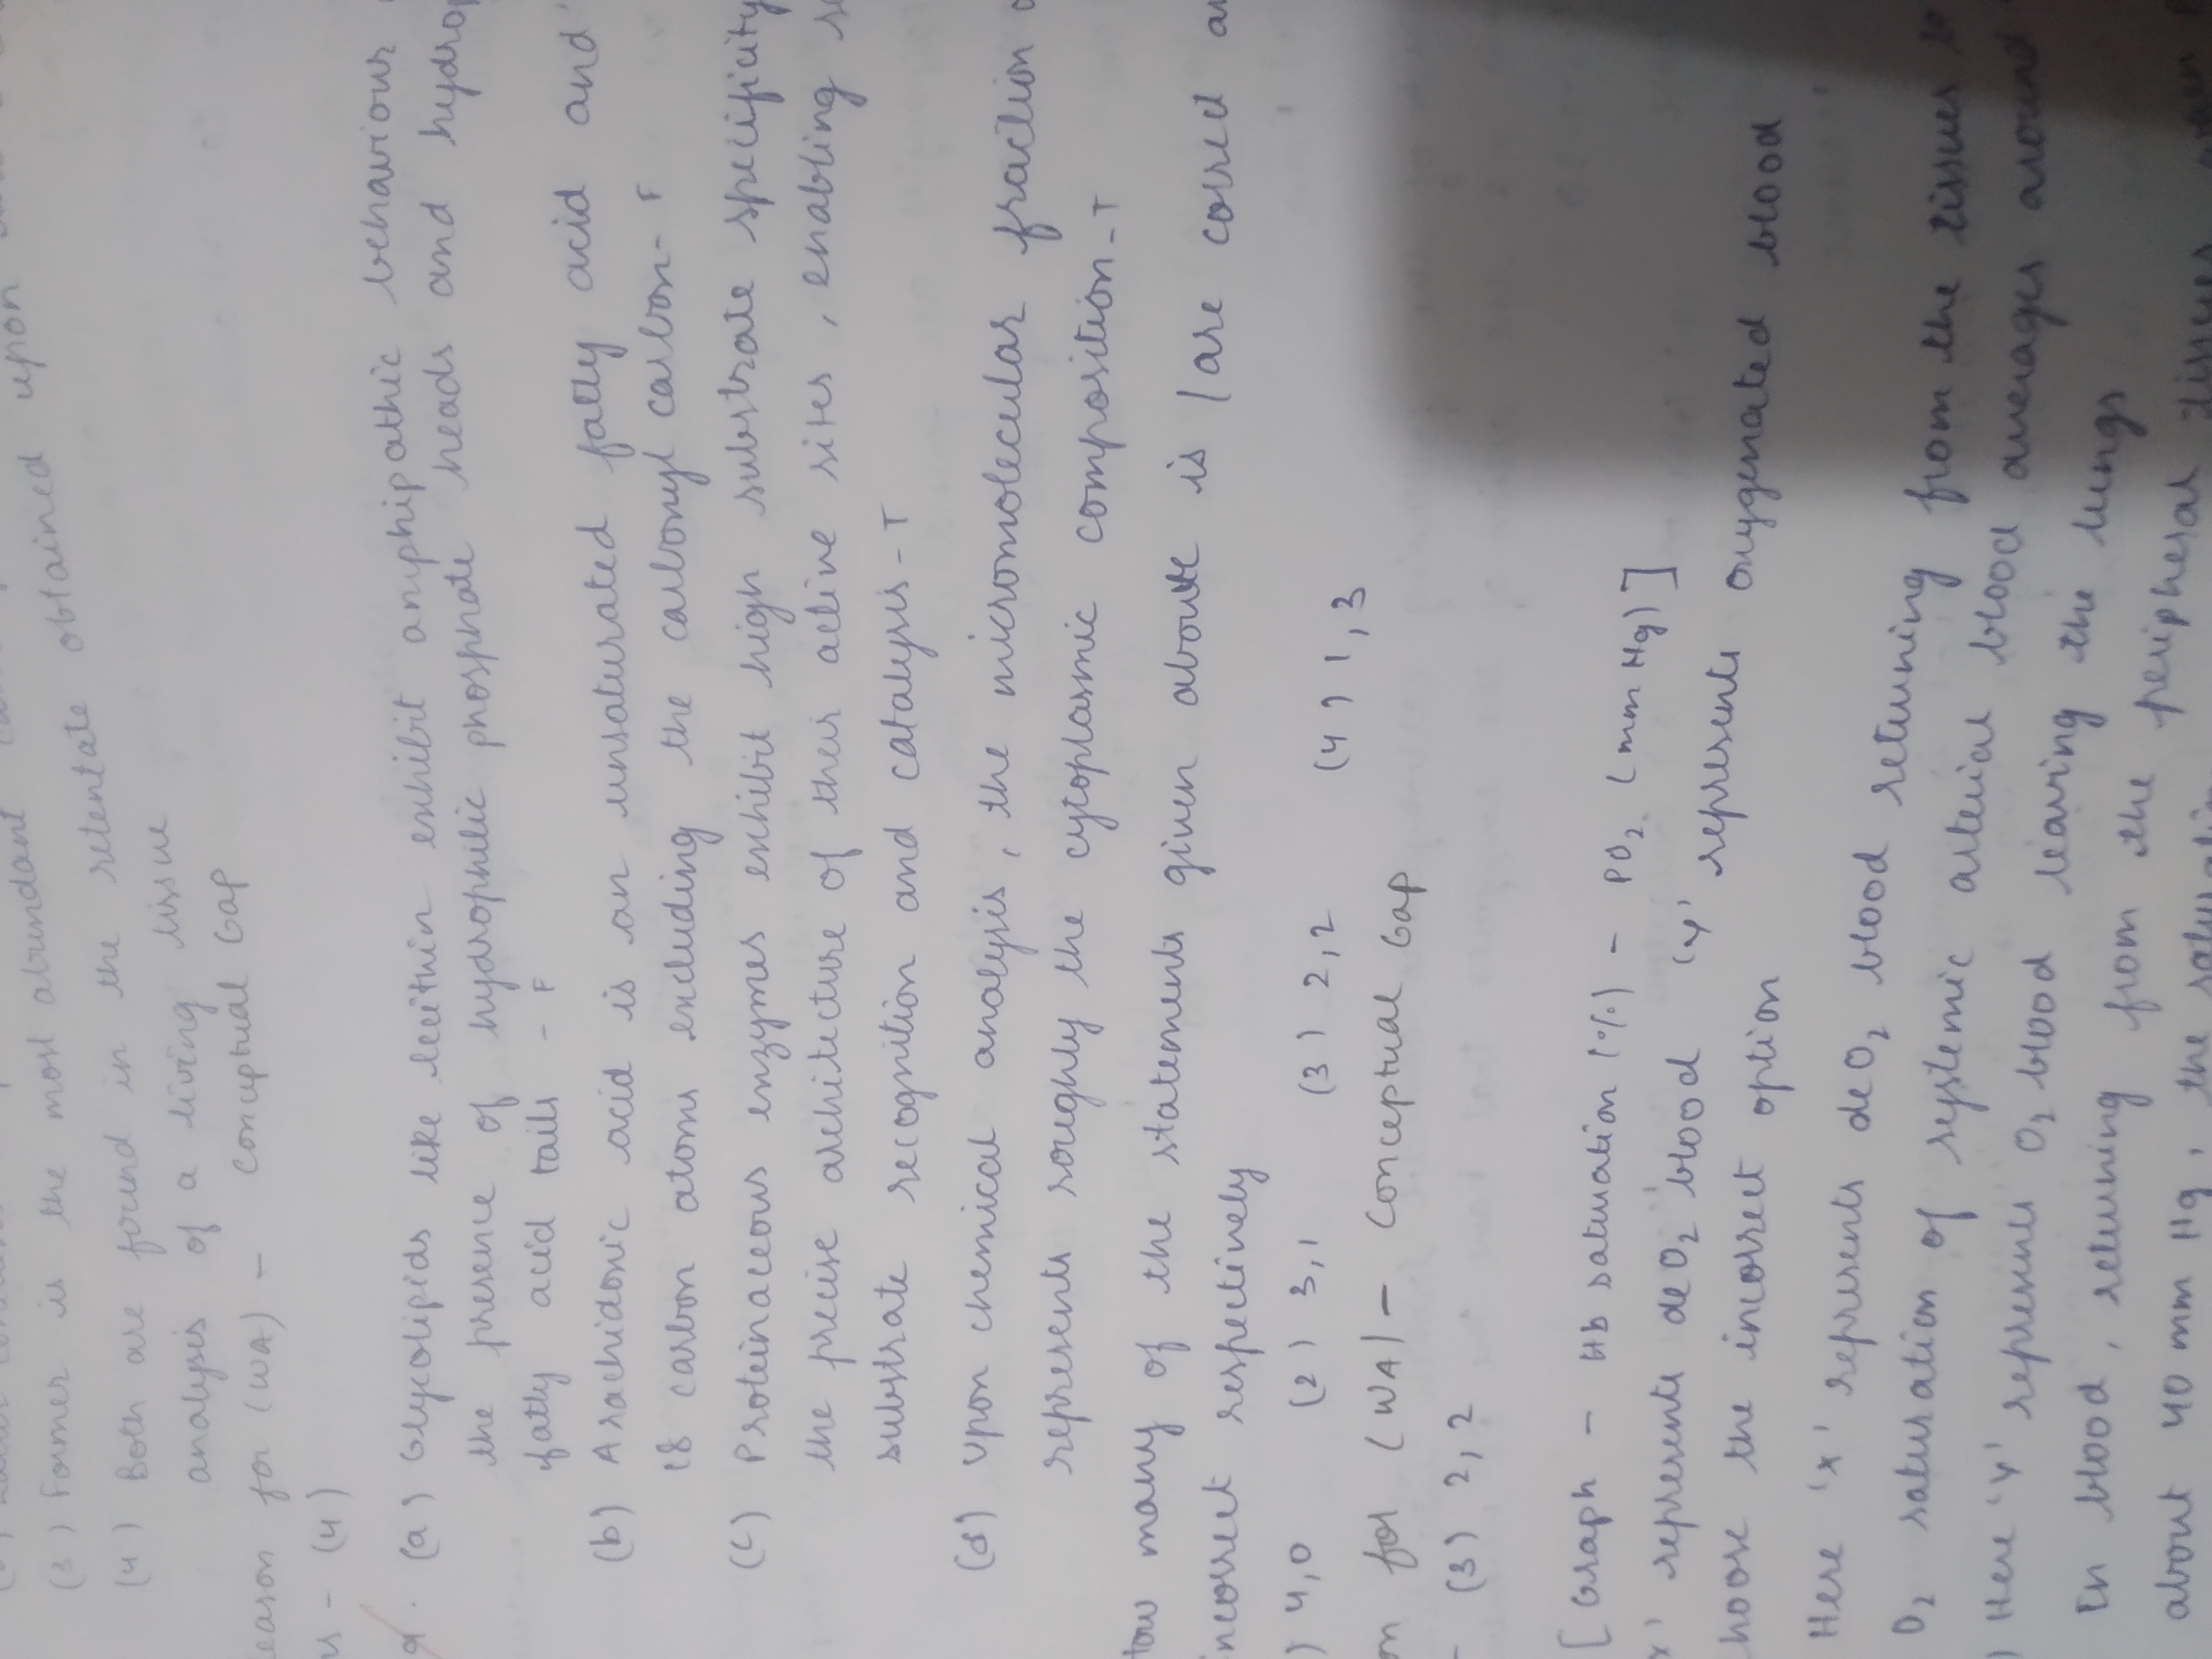 (3) Former is the most abundant
(4) Both are found in the retentate obtained upon
analysis of a living tissue
eason for (WA) - Conceptual Gap
ns - (4)
9. (a) Glycolipids like lecithin exhibit amphipathic behaviour
the presence of hydrophilic phosphate heads and hydrop
fatty acid tails - F
(b) Arachidonic acid is an unsaturated fatty acid and
18 carbon atoms excluding the carbonyl carbon - F
(c) Proteinaceous enzymes exhibit high substrate specificity
the precise architecture of their active sites, enabling se
substrate recognition and catalysis - T
(d) Upon chemical analysis, the micromolecular fraction o
represents roughly the cytoplasmic composition - T
How many of the statements given above is / are correct an
ncorrect respectively
) 4,0 (2) 3,1 (3) 2,2 (4) 1,3
on for (WA) - Conceptual Gap
- (3) 2,2
[Graph - Hb saturation (%) - PO₂ (mm Hg)]
x' represents deO₂ blood 'y' represents oxygenated blood
hoose the incorrect option
Here 'x' represents deO₂ blood returning from the tissues to
O₂ saturation of systemic arterial blood averages around
) Here 'y' represents O₂ blood leaving the lungs
In blood, returning from the peripheral tissues
about 40 mm Hg, the saturation